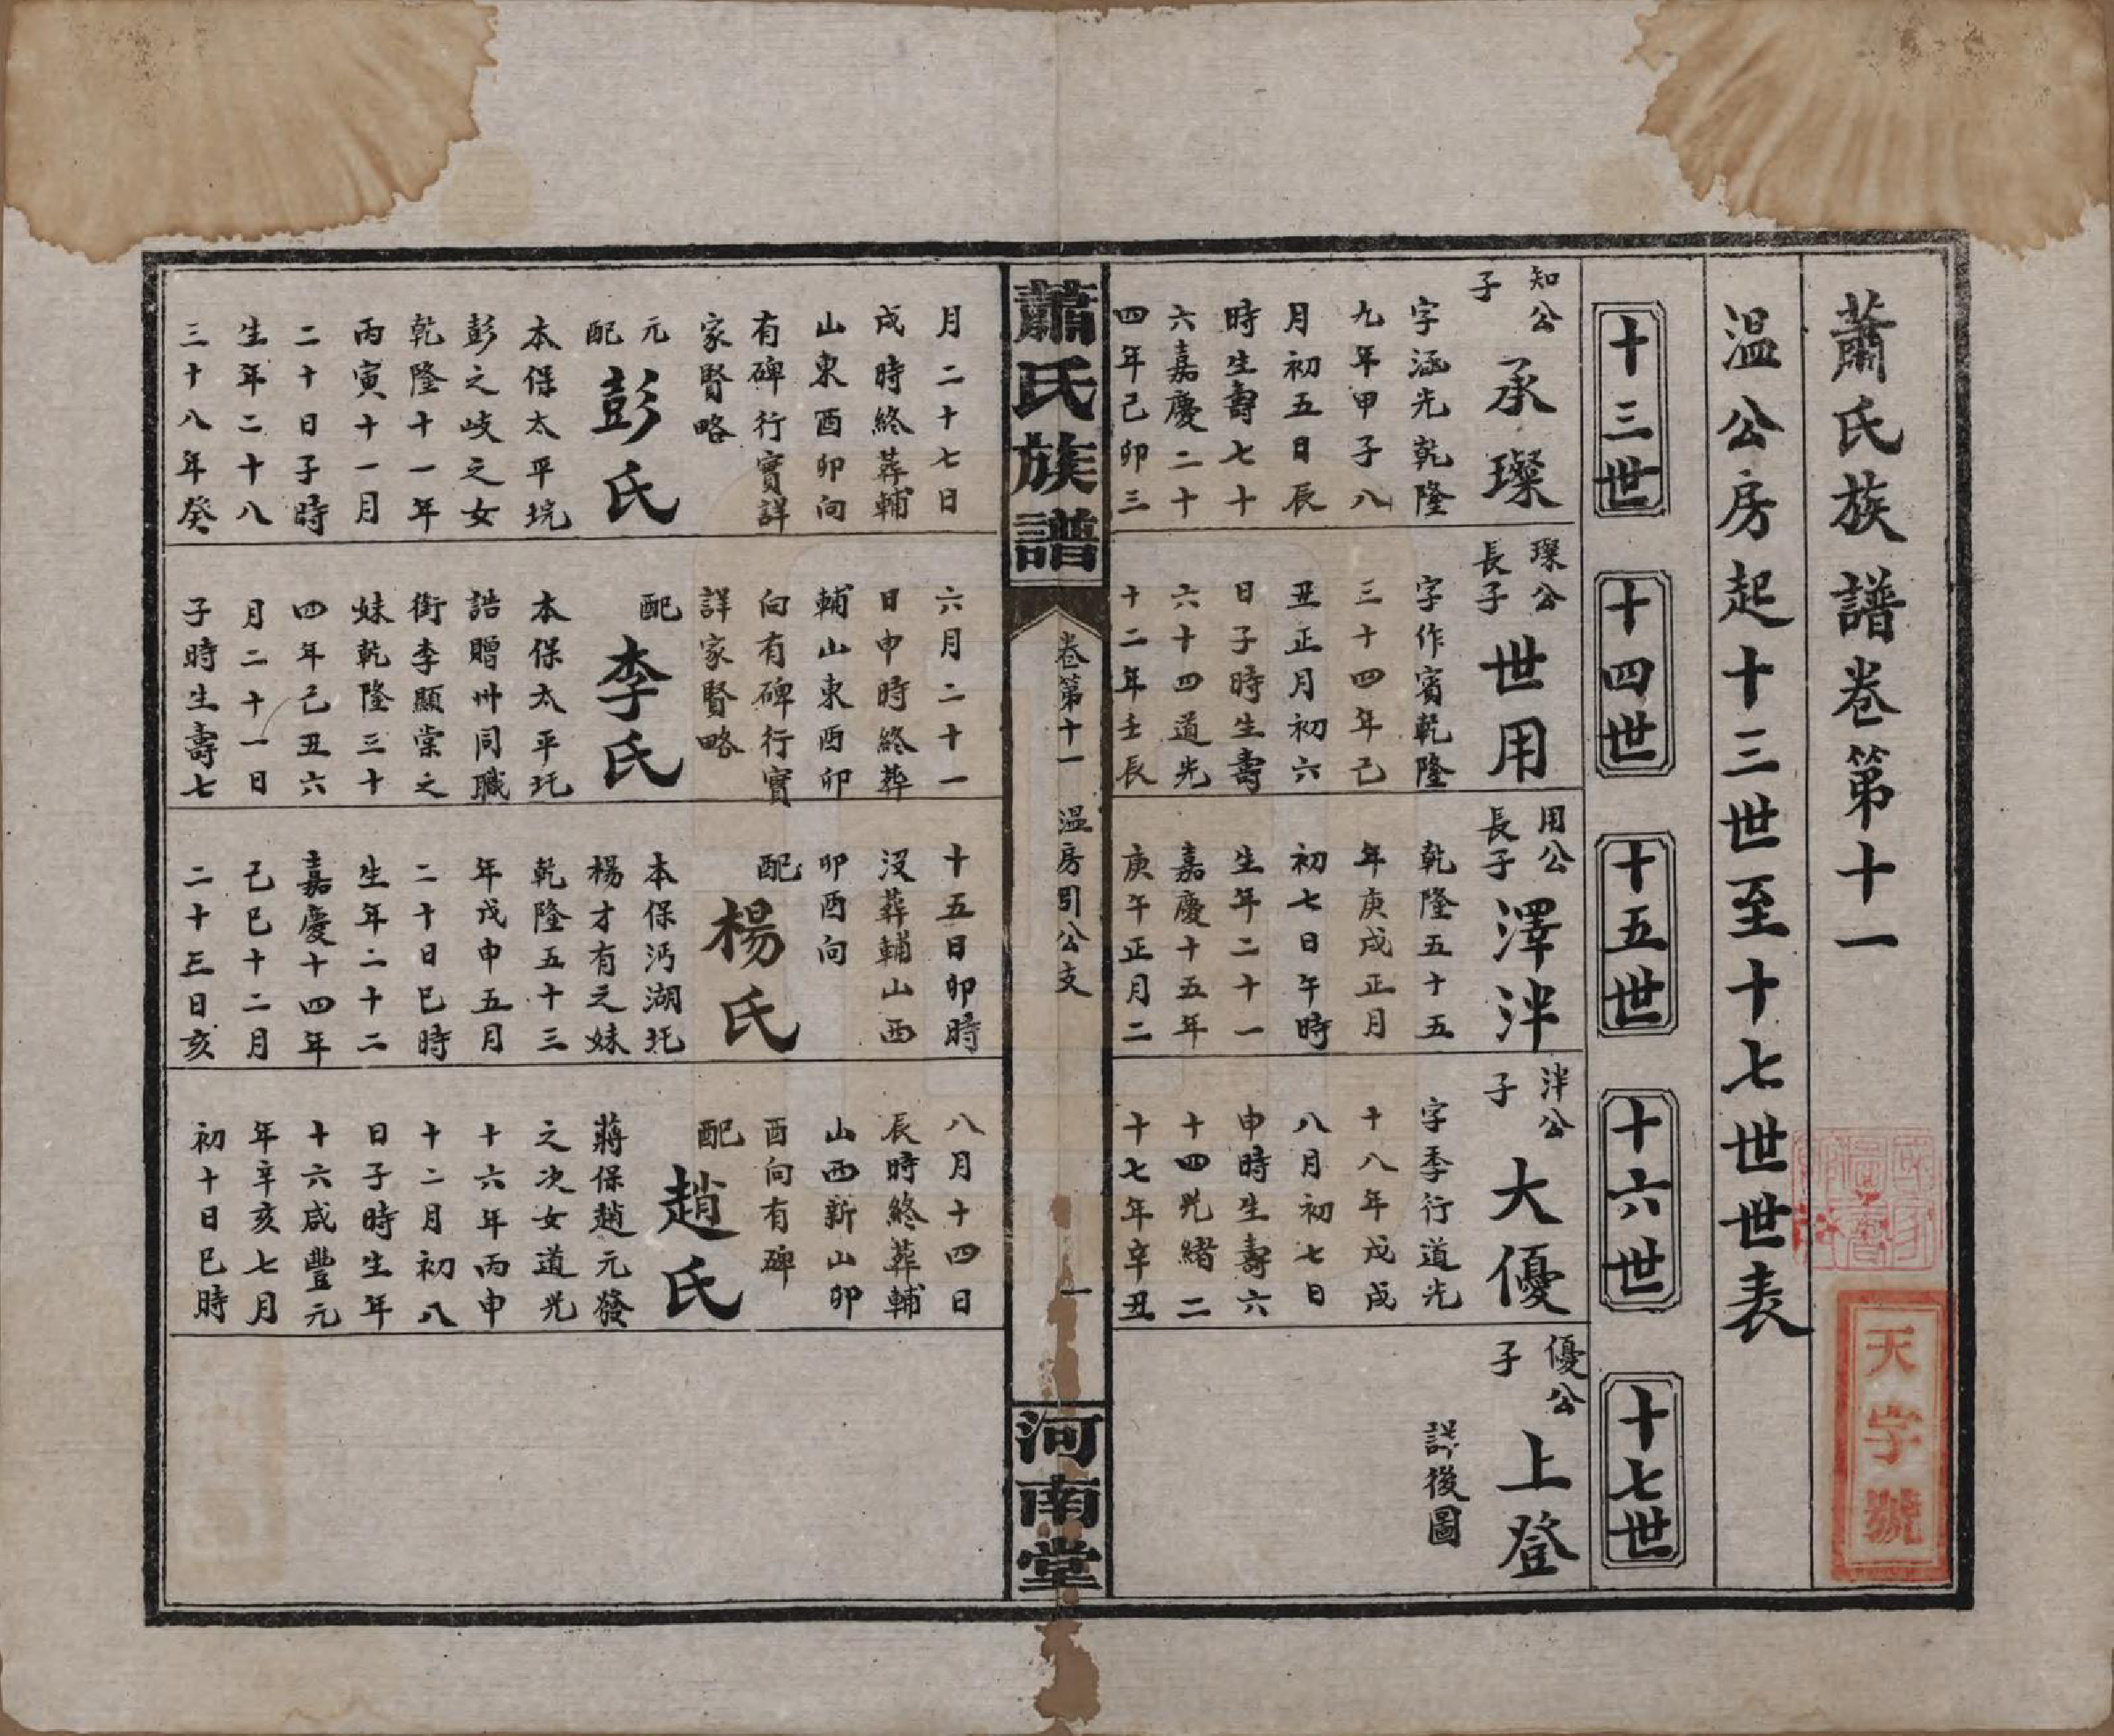 蕭氏族譜卷第十一
溫公房起十三世至十七世世表
十三世
十四世
十五世
十六世
十七世
知公
子
承璨
字涵光乾隆
九年甲子八
月初五日辰
時生壽七十
六嘉慶二十
四年己卯三
璨公
長子
世用
字作賓乾隆
三十四年己
丑正月初六
日子時生壽
六十四道光
十二年壬辰
用公
長子
澤泮
乾隆五十五
年庚戌正月
初七日午時
生年二十一
嘉慶十五年
庚午正月二
泮公
子
大優
字季行道光
十八年戊戌
八月初七日
申時生壽六
十四光緒二
十七年辛丑
優公
子
上登
詳後圖
蕭氏族譜
卷第十一
溫房引公支
一
河南堂
月二十七日
戌時終葬輔
山東酉卯向
有碑行實詳
家賢略
元
配
彭氏
本保太平垸
彭之岐之女
乾隆十一年
丙寅十一月
二十日子時
生年二十八
三十八年癸
六月二十一
日申時終葬
輔山東酉卯
向有碑行實
詳家賢略
配
李氏
本保太平圫
誥贈州同職
銜李顯棠之
妹乾隆三十
四年己丑六
月二十一日
子時生壽七
十五日卯時
沒葬輔山西
卯酉向
配
楊氏
本保沔湖圫
楊才有之妹
乾隆五十三
年戊申五月
二十日巳時
生年二十二
嘉慶十四年
己巳十二月
二十三日亥
八月十四日
辰時終葬輔
山西新山卯
酉向有碑
配
趙氏
蔣保趙元發
之次女道光
十六年丙申
十二月初八
日子時生年
十六咸豐元
年辛亥七月
初十日巳時
天字號